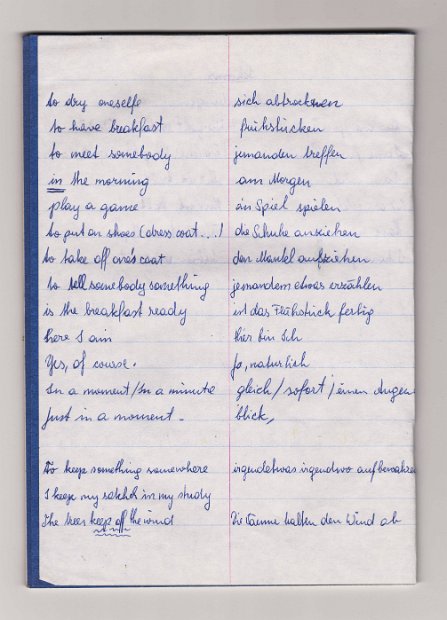 to dry oneselfe sich abtrocknen
to have breakfast frühstücken
to meet somebody jemanden treffen
in the morning am Morgen
play a game ein Spiel spielen
to put on shoes (dress coat...) die Schuhe anziehen
to take off one's coat den Mantel aufziehen
to tell somebody something jemandem etwas erzählen
is the breakfast ready ist das Frühstück fertig
here I am hier bin Ich
Yes, of course. Ja, natürlich
In a moment/In a minute gleich/sofort/einen Augen
Just in a moment. blick,
To keep something somewhere irgendetwas irgendwo aufbewahren
I keep my satchel in my study
The trees keep off the wind Die Bäume halten den Wind ab